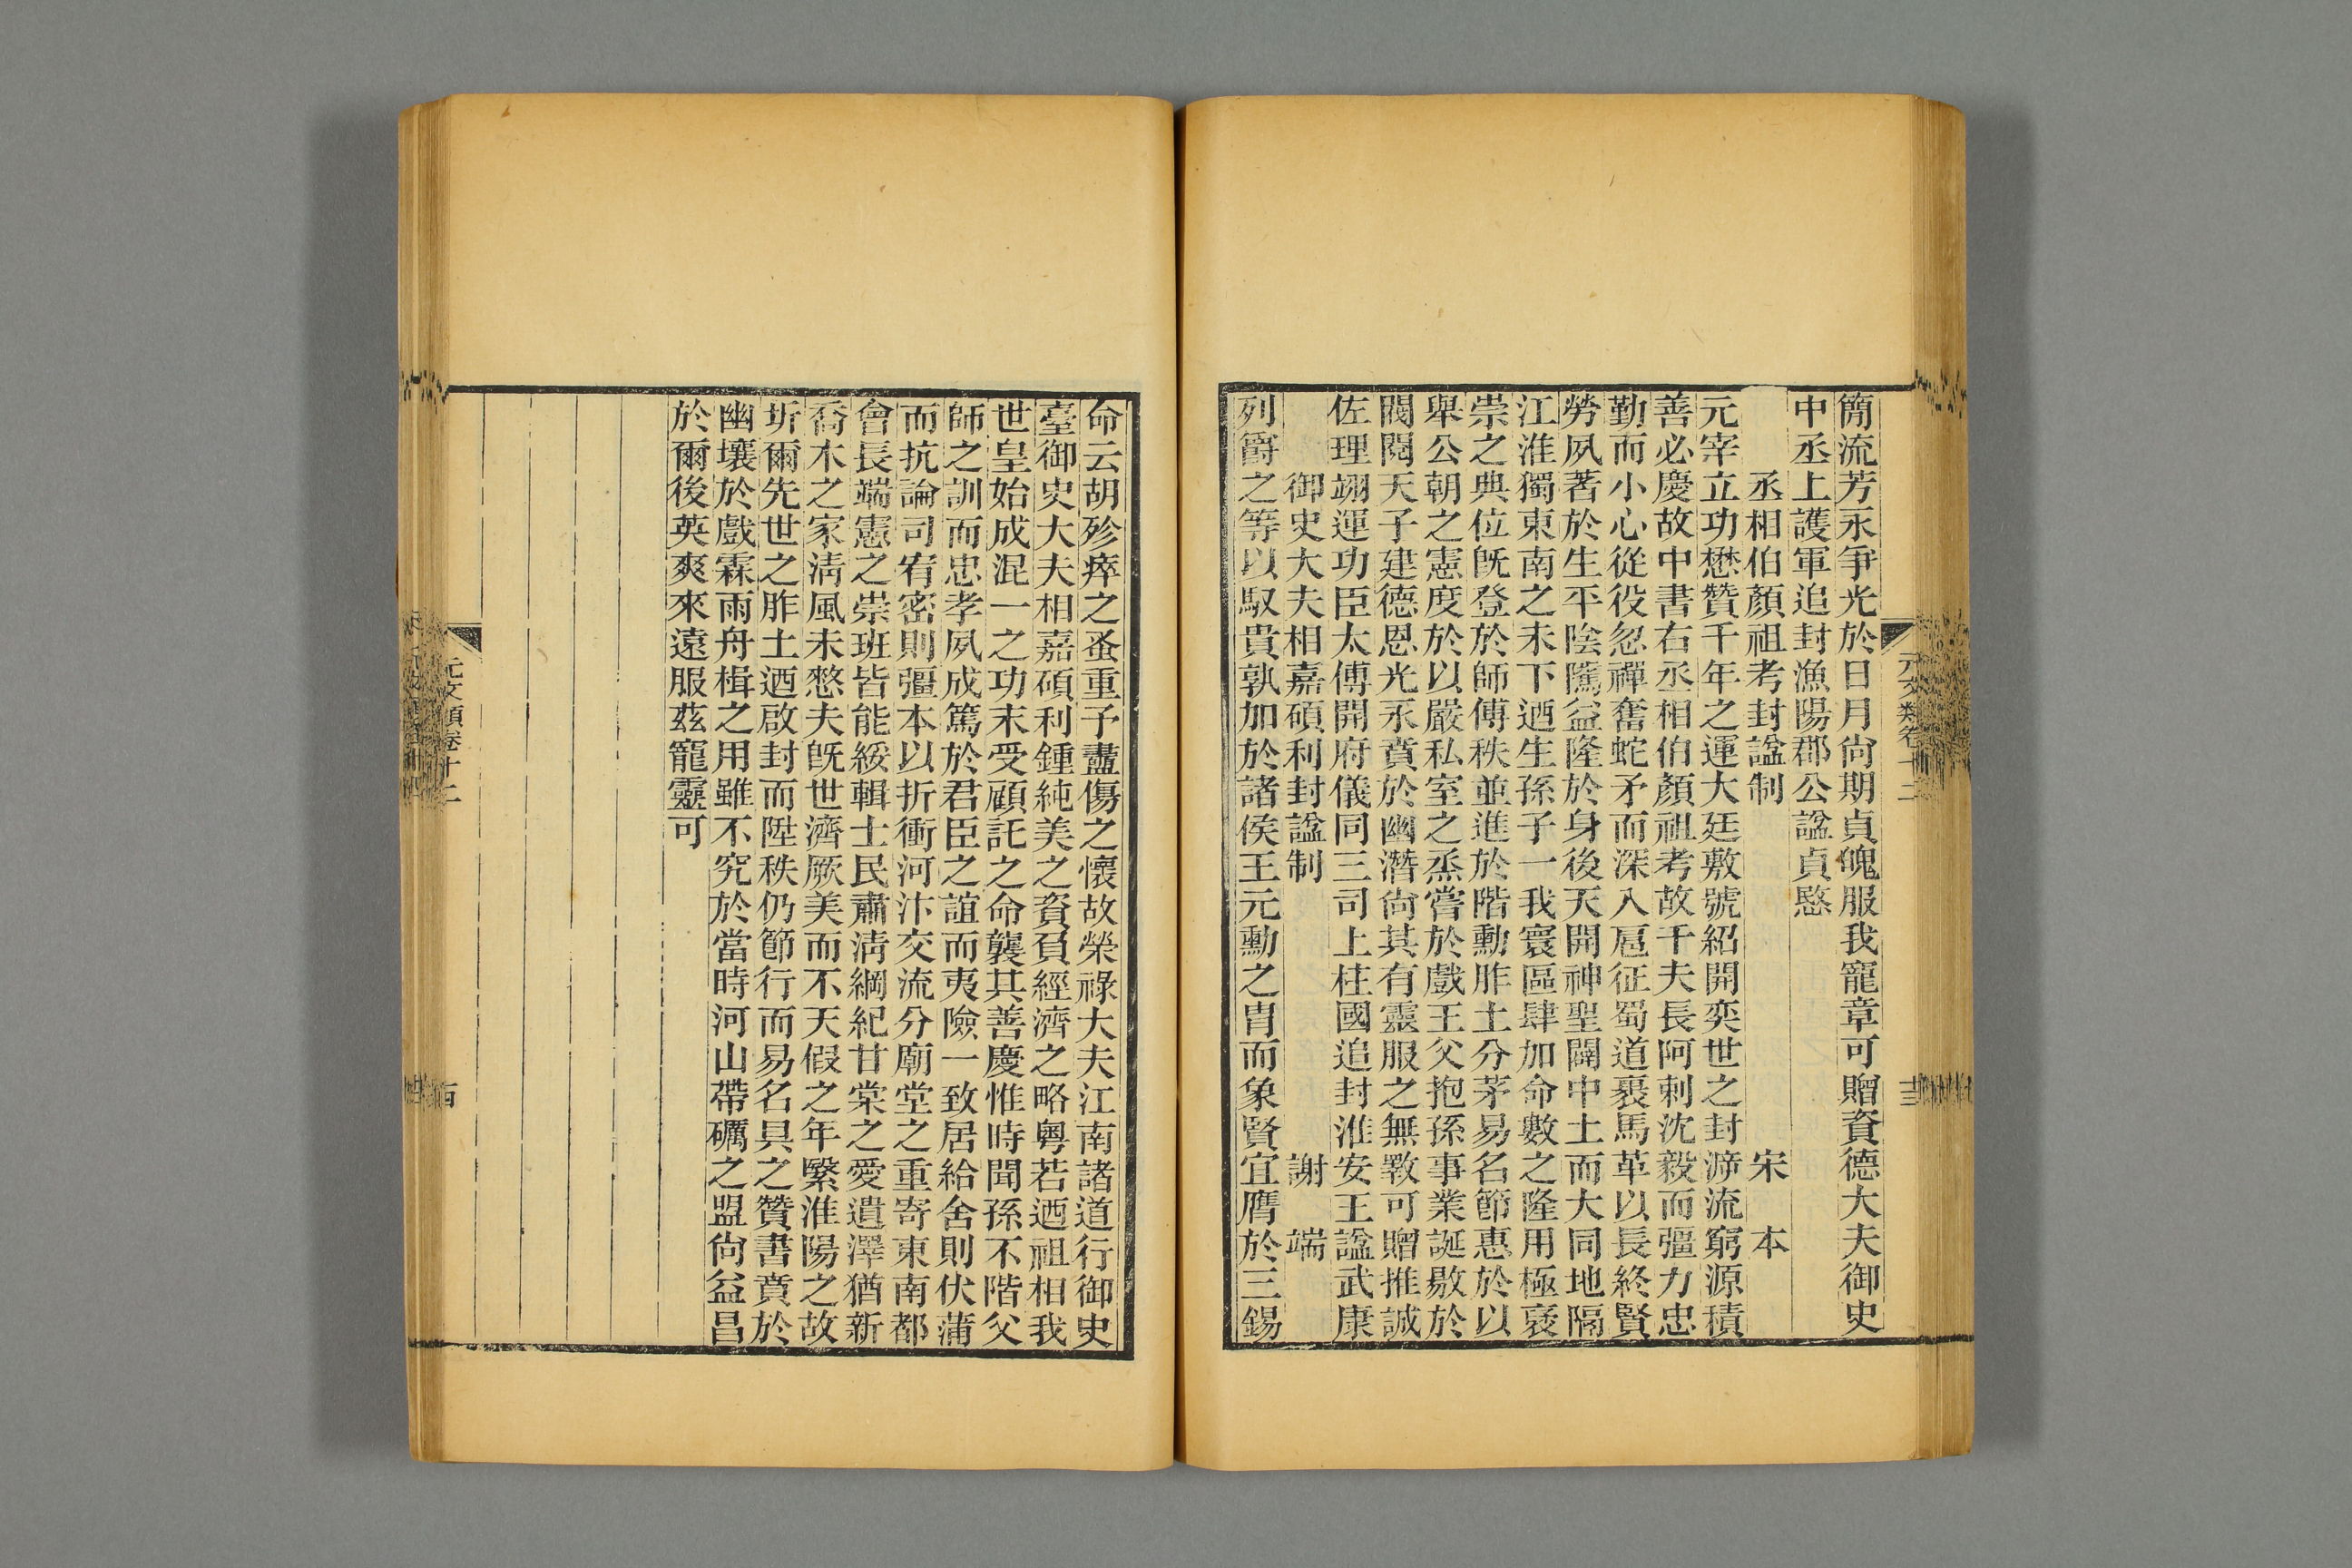 簡流芳永爭光於日月尙期貞魄服我寵章可贈資德大夫御史
中丞上護軍追封漁陽郡公謚貞愍
丞相伯顏祖考封謚制 宋本
元宰立功懋贊千年之運大廷敷號紹開奕世之封㴑流窮源積
善必慶故中書右丞相伯顏祖考故千夫長阿剌沈毅而彊力忠
勤而小心從役忽禪奮蛇矛而深入扈征蜀道裹馬革以長終賢
勞夙著於生平陰隲益隆於身後天開神聖闢中土而大同地隔
江淮獨東南之未下迺生孫子一我寰區肆加命數之隆用極褒
崇之典位旣登於師傅秩並進於階勳胙土分茅易名節惠於以
舉公朝之憲度於以嚴私室之烝嘗於戲王父抱孫事業誕敭於
閥閱天子建德恩光永賁於幽潛尙其有靈服之無斁可贈推誠
佐理翊運功臣太傅開府儀同三司上柱國追封淮安王謚武康
御史大夫相嘉碩利封謚制 謝端
列爵之等以馭貴孰加於諸侯王元勳之胄而象賢宜膺於三錫
元文類卷十二
十三
命云胡殄瘁之虿重予衋傷之懷故榮祿大夫江南諸道行御史
臺御史大夫相嘉碩利鍾純美之資負經濟之略粵若迺祖相我
世皇始成混一之功末受顧託之命襲其善慶惟時聞孫不階父
師之訓而忠孝夙成篤於君臣之誼而夷險一致居給舍則伏蒲
而抗論司宥密則彊本以折衝河汴交流分廟堂之重寄東南都
會長端憲之崇班皆能綏輯士民肅淸綱紀甘棠之愛遺澤猶新
喬木之家淸風未憖夫旣世濟厥美而不天假之年繄淮陽之故
圻爾先世之胙土迺啟封而陞秩仍節行而易名具之贊書賁於
幽壤於戲霖雨舟楫之用雖不究於當時河山帶礪之盟尙益昌
於爾後英爽來遠服茲寵靈可
元文類卷十二